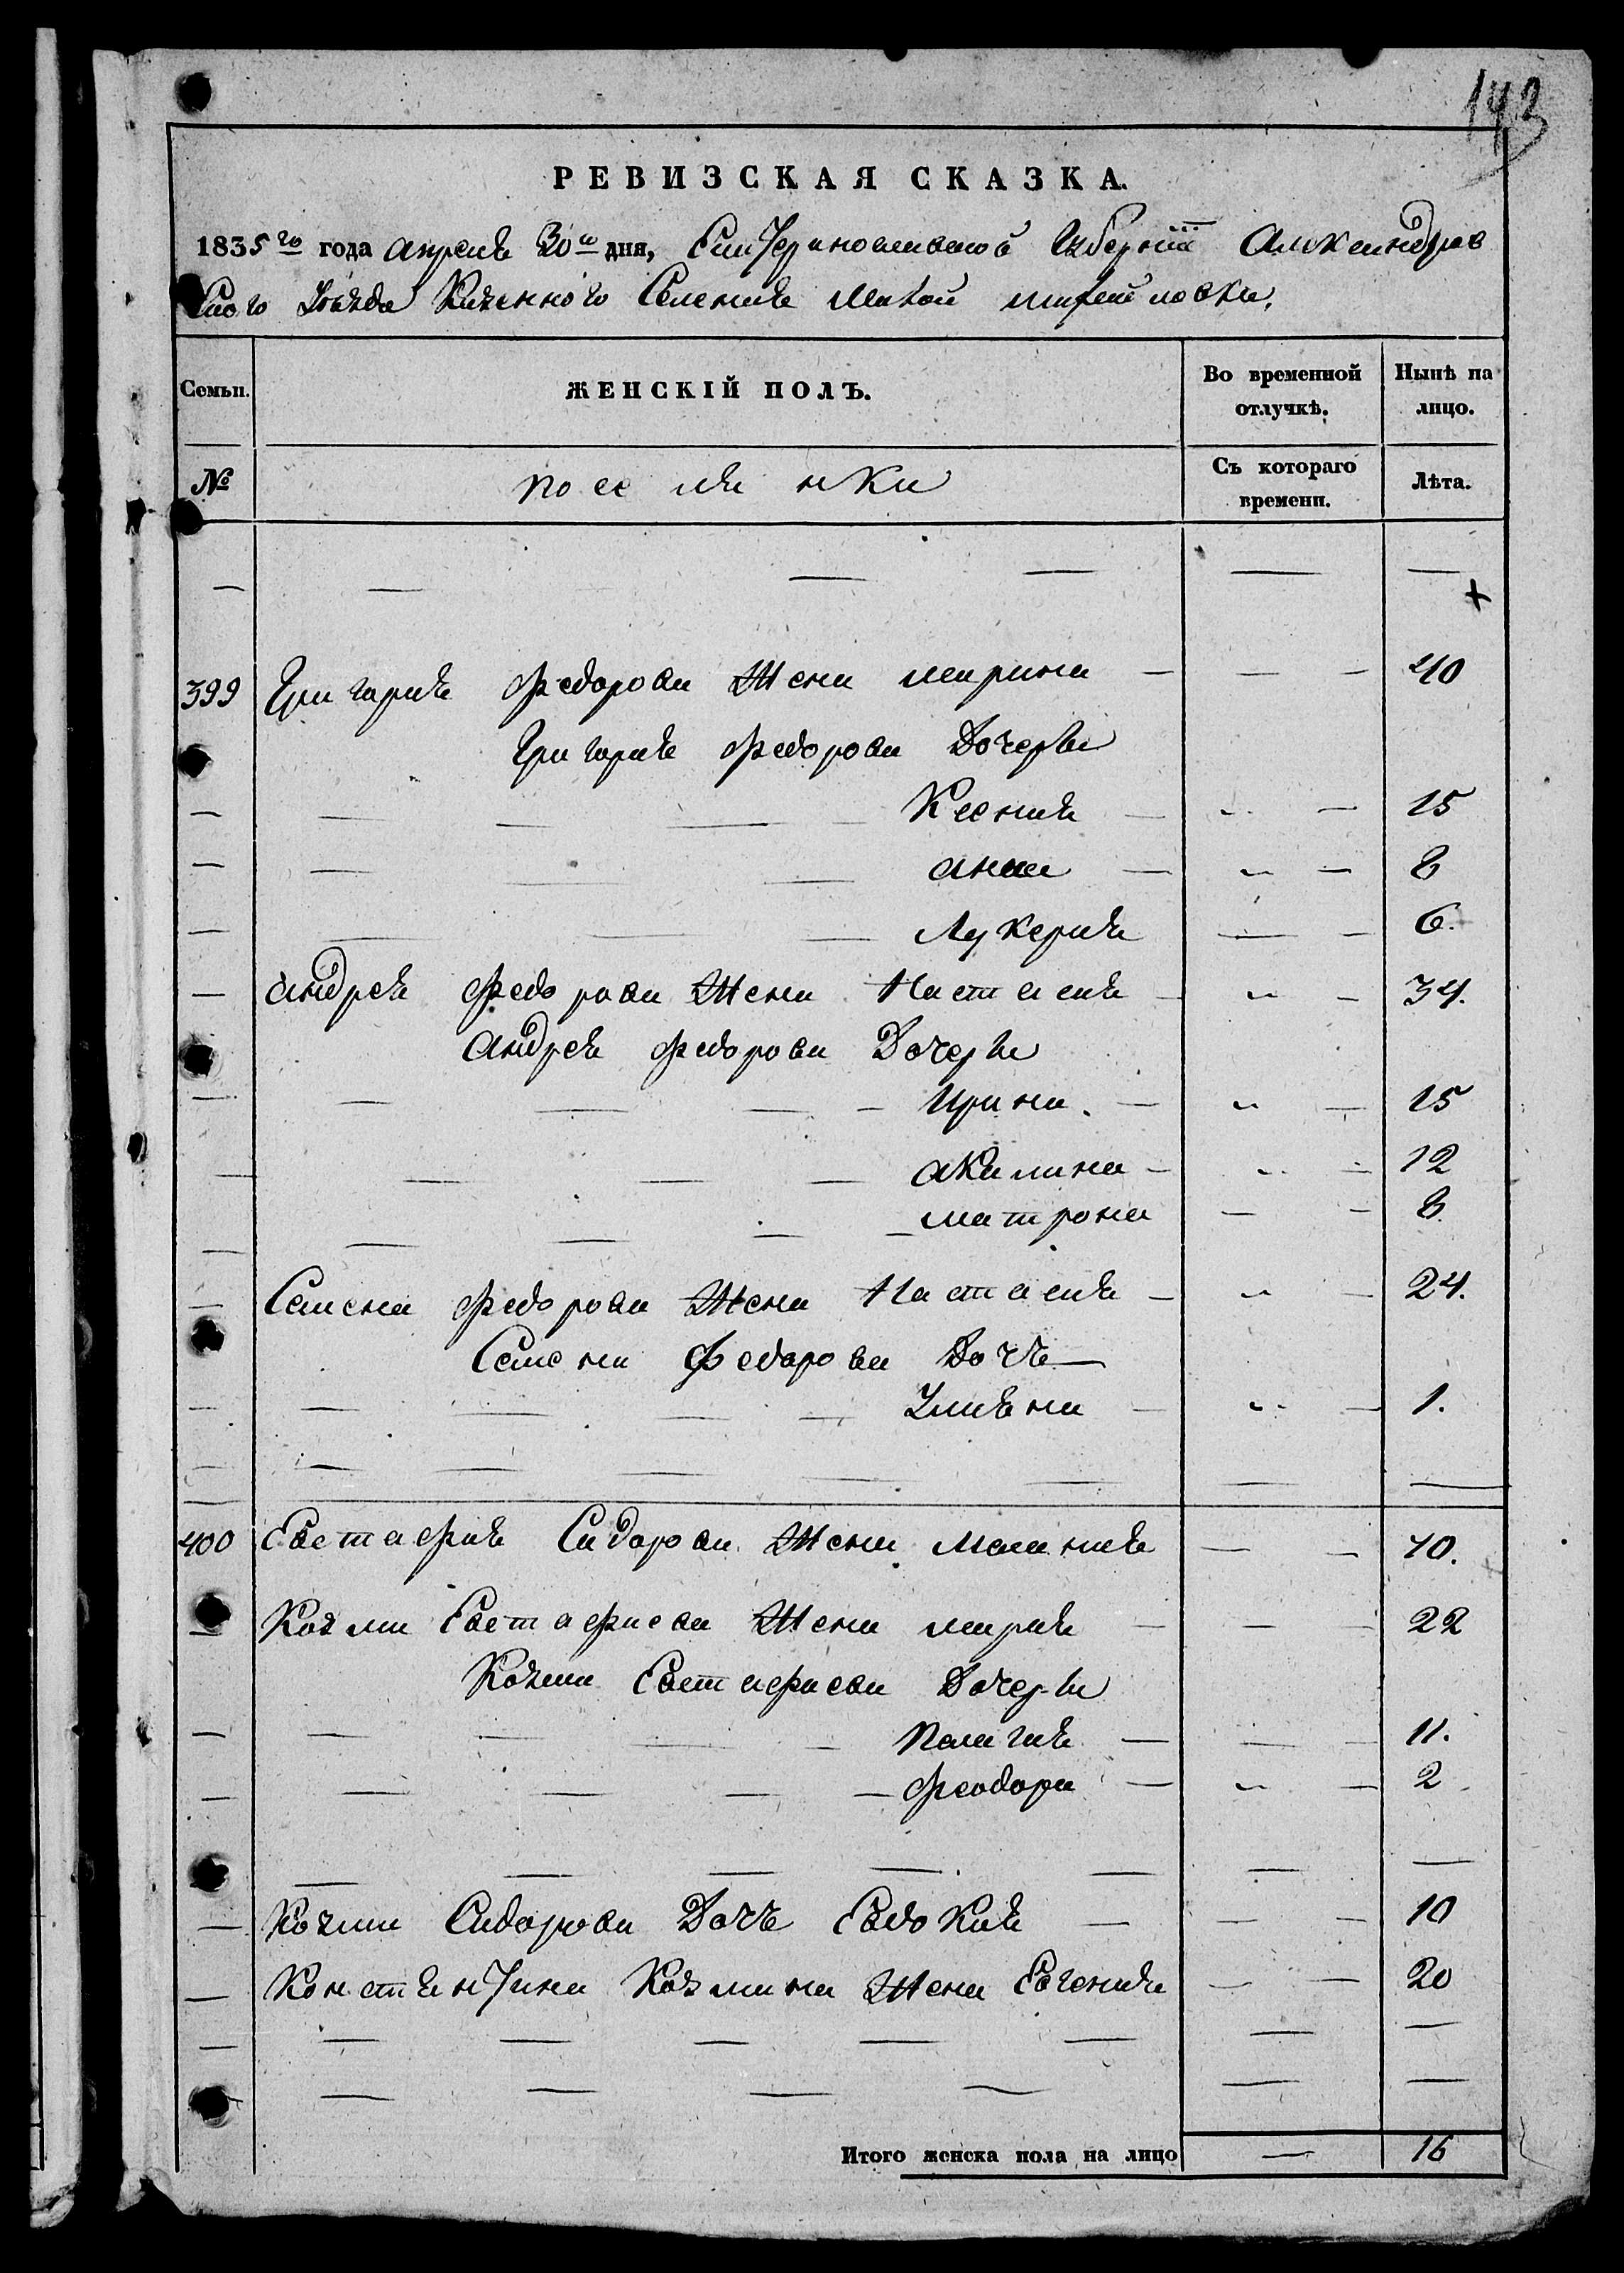 143
РЕВИЗСКАЯ СКАЗКА.
1835го года апреля 30го дня, Екатеринославской Губернии Александров
ского Уезда Казенного Селения Малой
Семьи. ЖЕНСКІЙ ПОЛЪ. Во временной отлучкѣ. Нынѣ на лицо.
№ поселянки Съ котораго времени. Лѣта.
399 Григория Федорова Жена марина — 40
Григория Федорова Дочери
Ксения — 15
анна — 8
Лукерия 6.
андрея Федорова Жена Настасия — 34.
андрея Федорова Дочери
Ирина. — 15
акилина — 12
матрона 8.
Семена Федорова Жена Настасия — 24.
Семена Федорова Дочь
Улияна — 1.
400 Евстафия Сидорова Жена Мелания 40.
Козми Евстафиева Жена мария — 22
Козми Евстафиева Дочери
Палагия — 11.
Феодора — 2
Козми Сидорова Дочь Евдокия — 10
Константина Козмина Жена Евгения 20
Итого женска пола на лицо — 16